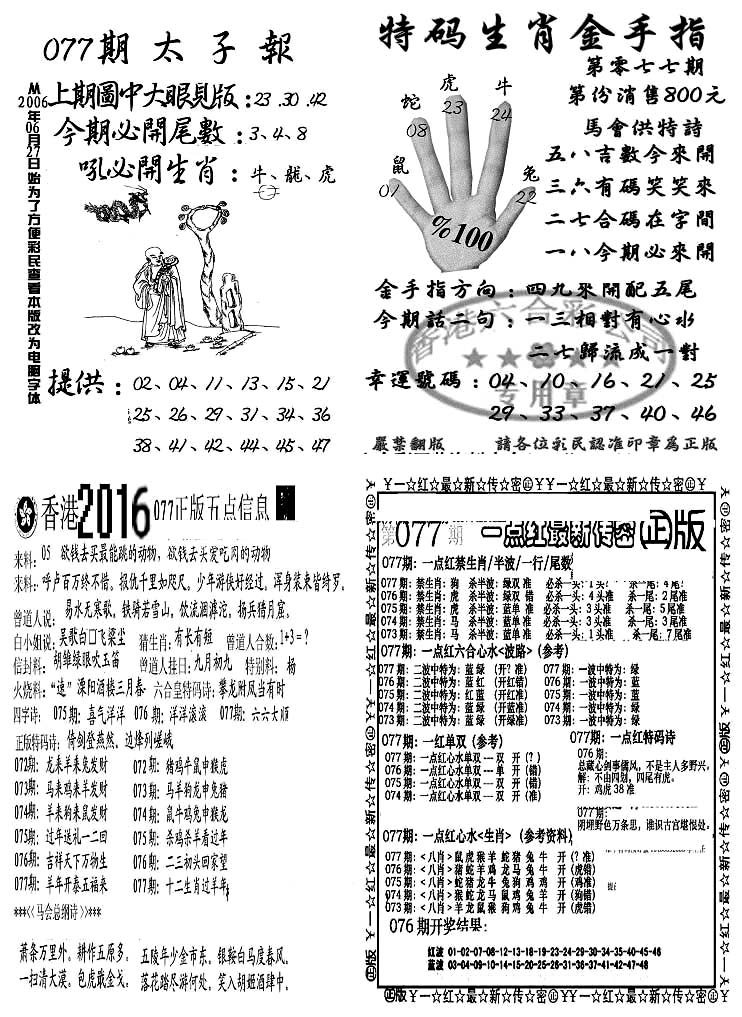 077期太子報
从2006年06月27日始为了方便彩民查看本版改为电脑字体
上期圖中大眼見版:23.30.42
今期必開尾數:3、4、8
吼必開生肖:牛、龍、虎
提供:02、04、11、13、15、21
25、26、29、31、34、36
38、41、42、44、45、47
特码生肖金手指
第零七七期
第份消售800元
馬會供特詩
五八吉數今來開
三六有碼笑笑來
二七合碼在字間
一八今期必來開
鼠 01
蛇 08
虎 23
牛 24
兔 22
%100
金手指方向:四九來開配五尾
今期話二句:一三相對有心水
二七歸流成一對
香港六合彩公司
专用章
幸運號碼:04、10、16、21、25
29、33、37、40、46
嚴禁翻版 請各位彩民認准印章為正版
香港2016 077正版五点信息
来料:05 欲钱去买最能跳的动物,欲钱去头爱吃肉的动物
来料:呼卢百万终不惜。报仇千里如咫尺。少年游侠好经过。浑身装束皆绮罗。
曾道人说:易水无寒歌,铁骑若雪山,饮流涸滹沱。扬兵猎月窟。
白小姐说:吴歌白囗飞梁尘 猜生肖:有长有短 曾道人合数:1+3=?
信封料:胡雏绿眼吹玉笛 曾道人挂日:九月初九 特别料:杨
火烧料:“速”溧阳酒楼三月春 六合皇特码诗:攀龙附凤当有时
四字诗: 075期:喜气洋洋 076期:洋洋滚滚 077期:六六大顺
正版特码诗:倚剑登燕然。边烽列嵯峨
072期:龙来羊来兔发财 072期:猪鸡牛鼠申猴虎
073期:马来鸡来羊发财 073期:马羊狗龙申兔猪
074期:羊来豹来鼠发财 074期:鼠牛鸡兔申猴龙
075期:过年送礼一二回 075期:杀鸡杀羊看过年
076期:吉祥天下万物生 076期:二三初头回家望
077期:羊年开泰五福来 077期:十二生肖过羊年
***<<马会总纲诗>>***
萧条万里外。耕作五原多。 五陵年少金市东。银鞍白马度春风。
一扫清大漠。包虎戢金戈。 落花踏尽游何处。笑入胡姬酒肆中。
丫一☆红☆最☆新☆传☆密
第077期 一点红最新传密(正)版
077期:一点红禁生肖/半波/一行/尾数
077期:禁生肖:狗 杀半波:绿双 准
076期:禁生肖:虎 杀半波:绿双 错 必杀一头:4头准 杀一尾:2尾准
075期:禁生肖:虎 杀半波:蓝单 准 必杀一头:3头准 杀一尾:5尾准
074期:禁生肖:马 杀半波:蓝单 准 必杀一头:3头准 杀一尾:4尾准
073期:禁生肖:马 杀半波:蓝单 准 必杀一头:1头准 杀一尾:7尾准
077期:一点红六合心水<波路>(参考)
077期:二波中特为:蓝绿 (开?准) 077期:一波中特为:绿
076期:二波中特为:蓝红 (开红错) 076期:一波中特为:蓝
075期:二波中特为:红蓝 (开红准) 075期:一波中特为:蓝
074期:二波中特为:蓝绿 (开蓝准) 074期:一波中特为:绿
073期:二波中特为:蓝绿 (开绿准) 073期:一波中特为:绿
077期:一红单双(参考)
077期:一点红心水单双--双 开(?)
076期:一点红心水单双--单 开(错)
075期:一点红心水单双--双 开(错)
074期:一点红心水单双--双 开(准)
077期:一点红特码诗
076期:
总藏心剑事儒风,不是主人多野兴。
解:不由四划,四尾有虎。
开:鸡虎38准
077期:
阴埋野色万条思,谁识古宫堪恨处。
077期:一点红心水<生肖>(参考资料)
077期:<八肖>鼠虎猴羊 蛇猪兔牛 开(?准)
076期:<八肖>猪蛇羊鸡 龙马兔牛 开(虎错)
075期:<八肖>蛇猪龙牛 兔狗鸡鸡 开(鸡准)
074期:<八肖>猴蛇龙兔 马鼠鸡羊 开(狗错)
073期:<八肖>羊龙鼠猴 狗鸡兔牛 开(虎错)
076期开奖结果:
红波 01-02-07-08-12-13-18-19-23-24-29-30-34-35-40-45-46
蓝波 03-04-09-10-14-15-20-25-26-31-36-37-41-42-47-48
正版丫一☆红☆最☆新☆传☆密